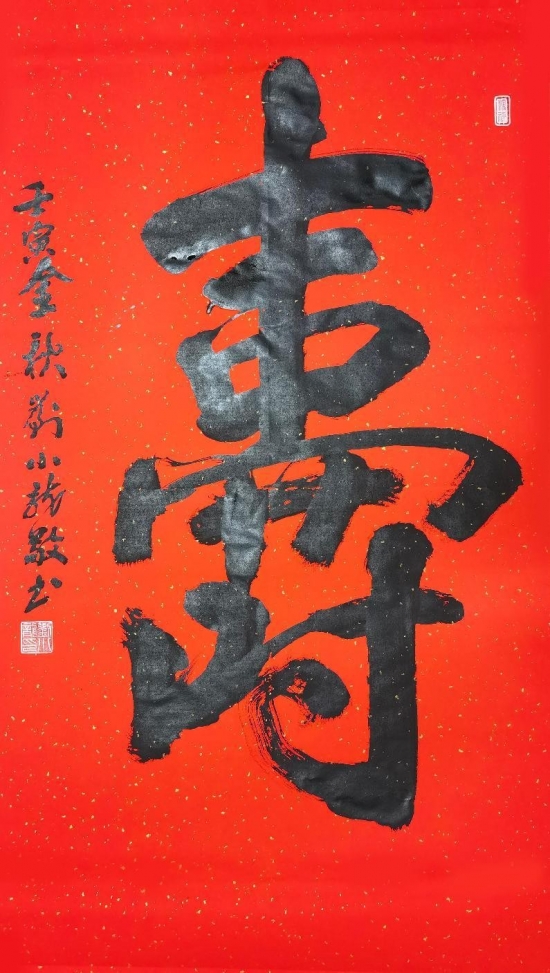 壽
壬寅金秋劉小龍敬书